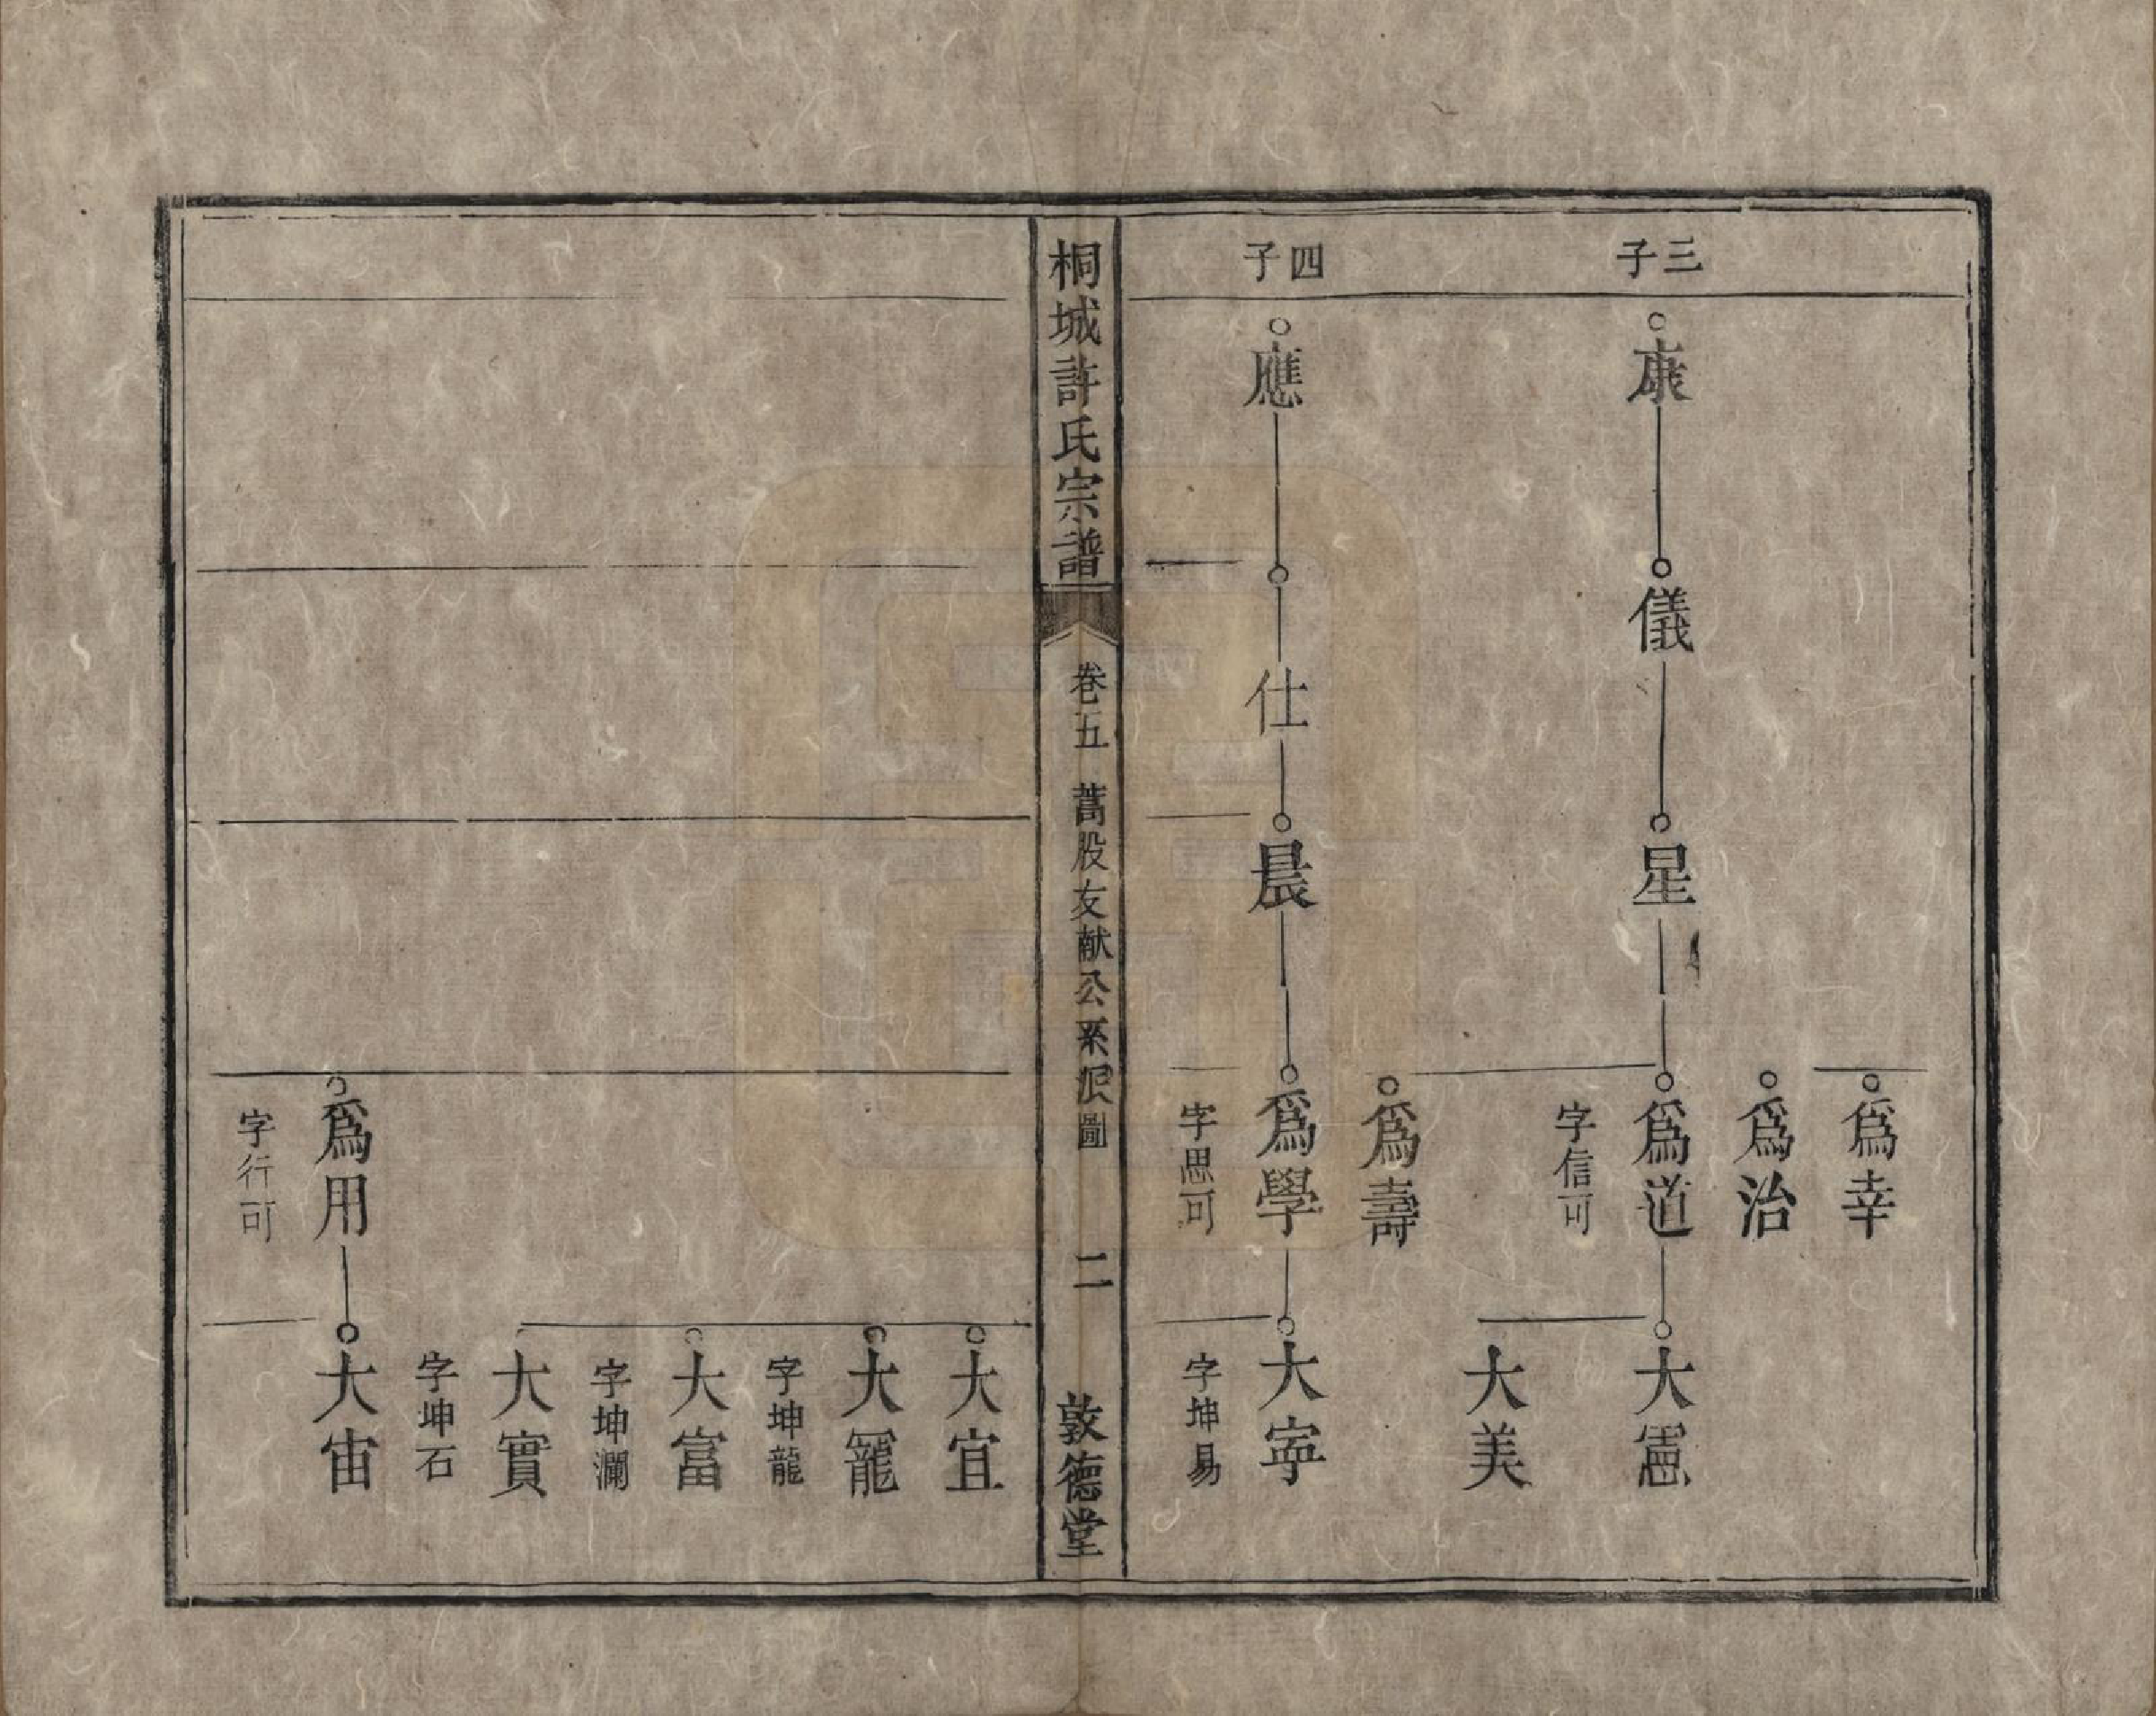 三子
康
儀
星
爲幸
爲治
爲道
字信可
大憲
大美
爲壽
四子
應
仕
晨
爲學
字思可
大寕
字坤易
桐城許氏宗譜
卷五
蒿股友献公系派圖
二
敦德堂
大宜
大寵
字坤龍
大富
字坤瀾
大實
字坤石
爲用
字行可
大宙